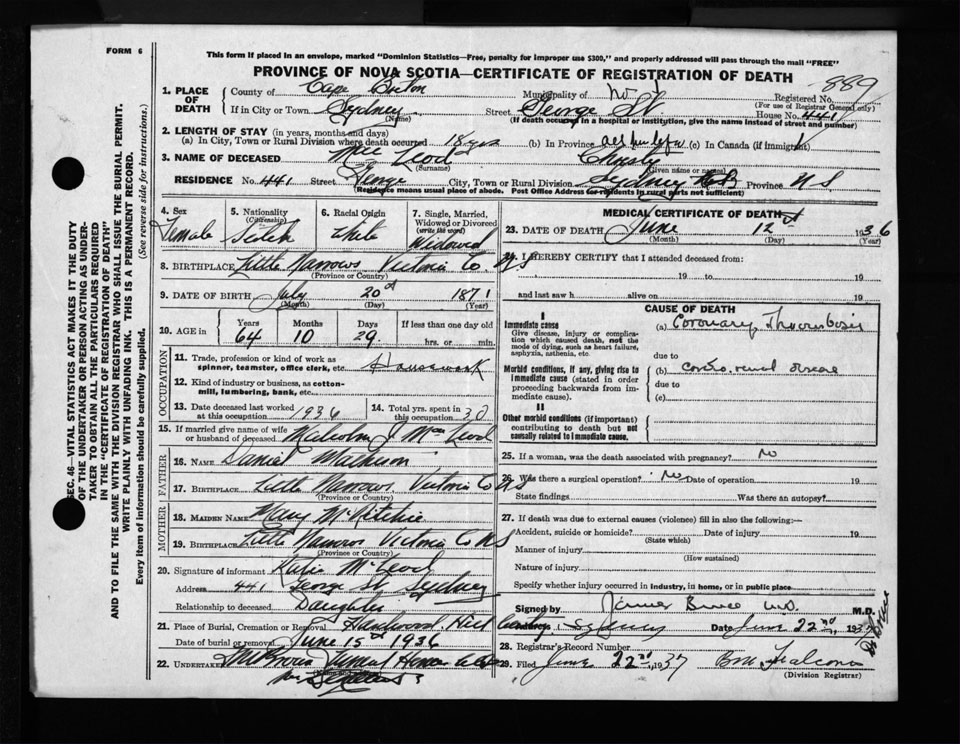 FORM 6
This form if placed in an envelope, marked "Dominion Statistics—Free, penalty for improper use $300," and properly addressed will pass through the mail "FREE"
PROVINCE OF NOVA SCOTIA—CERTIFICATE OF REGISTRATION OF DEATH
889
1. PLACE OF DEATH
County of Cape Breton Municipality of No 1 Registered No.
(For use of Registrar General only)
If in City or Town Sydney Street George St. House No. 441
(Name) (If death occurred in a hospital or institution, give the name instead of street and number)
2. LENGTH OF STAY (in years, months and days)
(a) In City, Town or Rural Division where death occurred 18 yrs (b) In Province (c) In Canada (if immigrant)
3. NAME OF DECEASED Mac Leod Christy
(Surname) (Given name or names)
RESIDENCE No. 441 Street George City, Town or Rural Division Sydney C B Province N S
(Residence means usual place of abode. Post Office Address for residents in rural parts not sufficient)
SEC. 46—VITAL STATISTICS ACT MAKES IT THE DUTY
OF THE UNDERTAKER OR PERSON ACTING AS UNDER-
TAKER TO OBTAIN ALL THE PARTICULARS REQUIRED
IN THE "CERTIFICATE OF REGISTRATION OF DEATH"
AND TO FILE THE SAME WITH THE DIVISION REGISTRAR WHO SHALL ISSUE THE BURIAL PERMIT.
WRITE PLAINLY WITH UNFADING INK. THIS IS A PERMANENT RECORD.
Every item of information should be carefully supplied. (See reverse side for instructions.)
4. Sex 5. Nationality 6. Racial Origin 7. Single, Married, Widowed or Divorced
(Citizenship) (write the word)
Female White Widowed
8. BIRTHPLACE Little Narrows Victoria Co N S
(Province or Country)
9. DATE OF BIRTH July 20 1871
(Month) (Day) (Year)
10. AGE in Years Months Days If less than one day
64 10 29 hrs. or min.
OCCUPATION
11. Trade, profession or kind of work as
spinner, teamster, office clerk, etc. Housework
12. Kind of industry or business, as cotton-
mill, lumbering, bank, etc.
13. Date deceased last worked at this occupation 1936 14. Total yrs. spent in this occupation 30
15. If married give name of wife
or husband of deceased Malcolm J. MacLeod
FATHER
16. NAME Daniel Matheson
17. BIRTHPLACE Little Narrows Victoria Co N S
(Province or Country)
MOTHER
18. MAIDEN NAME Mary McRitchie
19. BIRTHPLACE Little Narrows Victoria Co N S
(Province or Country)
20. Signature of informant Katie McLeod
Address 441 George St Sydney
Relationship to deceased Daughter
21. Place of Burial, Cremation or Removal Hardwood Hill
Date of burial or removal June 15th 1936
22. UNDERTAKER Funeral Home
MEDICAL CERTIFICATE OF DEATH
23. DATE OF DEATH June 12 1936
(Month) (Day) (Year)
I HEREBY CERTIFY that I attended deceased from:
19 to 19
and last saw h alive on 19
CAUSE OF DEATH
I
Immediate cause
Give disease, injury or complica-
tion which caused death, not the
mode of dying, such as heart failure,
asphyxia, asthenia, etc.
(a) Coronary Thrombosis
due to
Morbid conditions, if any, giving rise to
immediate cause (stated in order
proceeding backwards from im-
mediate cause).
(b) cardio renal disease
due to
(c)
II
Other morbid conditions (if important)
contributing to death but not
causally related to immediate cause.
25. If a woman, was the death associated with pregnancy? No
26. Was there a surgical operation? No Date of operation 19
State findings Was there an autopsy?
27. If death was due to external causes (violence) fill in also the following:—
Accident, suicide or homicide? Date of injury 19
(State which)
Manner of injury
(How sustained)
Nature of injury
Specify whether injury occurred in industry, in home, or in public place
Signed by James Bruce M.D. M.D.
Sydney Date June 22nd, 193
28. Registrar's Record Number
29. Filed June 22nd, 1937
(Division Registrar)